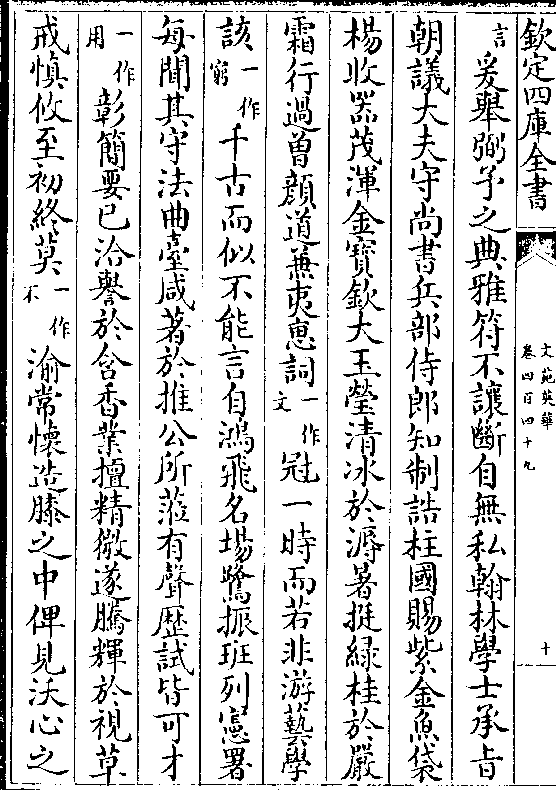 欽定四庫全書
文苑英華
卷四百四十九
十
言爰舉弼予之典雅符不讓斷自無私翰林學士承旨
朝議大夫守尚書兵部侍郎知制誥柱國賜紫金魚袋
楊收器茂渾金寶欽大玉瑩清冰於溽暑挺緑桂於嚴
霜行過曾顔道兼夷惠詞一作文冠一時而若非游藝學
該一作窮千古而似不能言自鴻飛名場鷺振班列憲署
毎聞其守法曲臺咸著於推公所蒞有聲歴試皆可才
一作用彰簡要已洽譽於含香業擅精微遂騰輝於視草
戒慎攸至初終莫一作不渝常懷造膝之中俾見沃心之